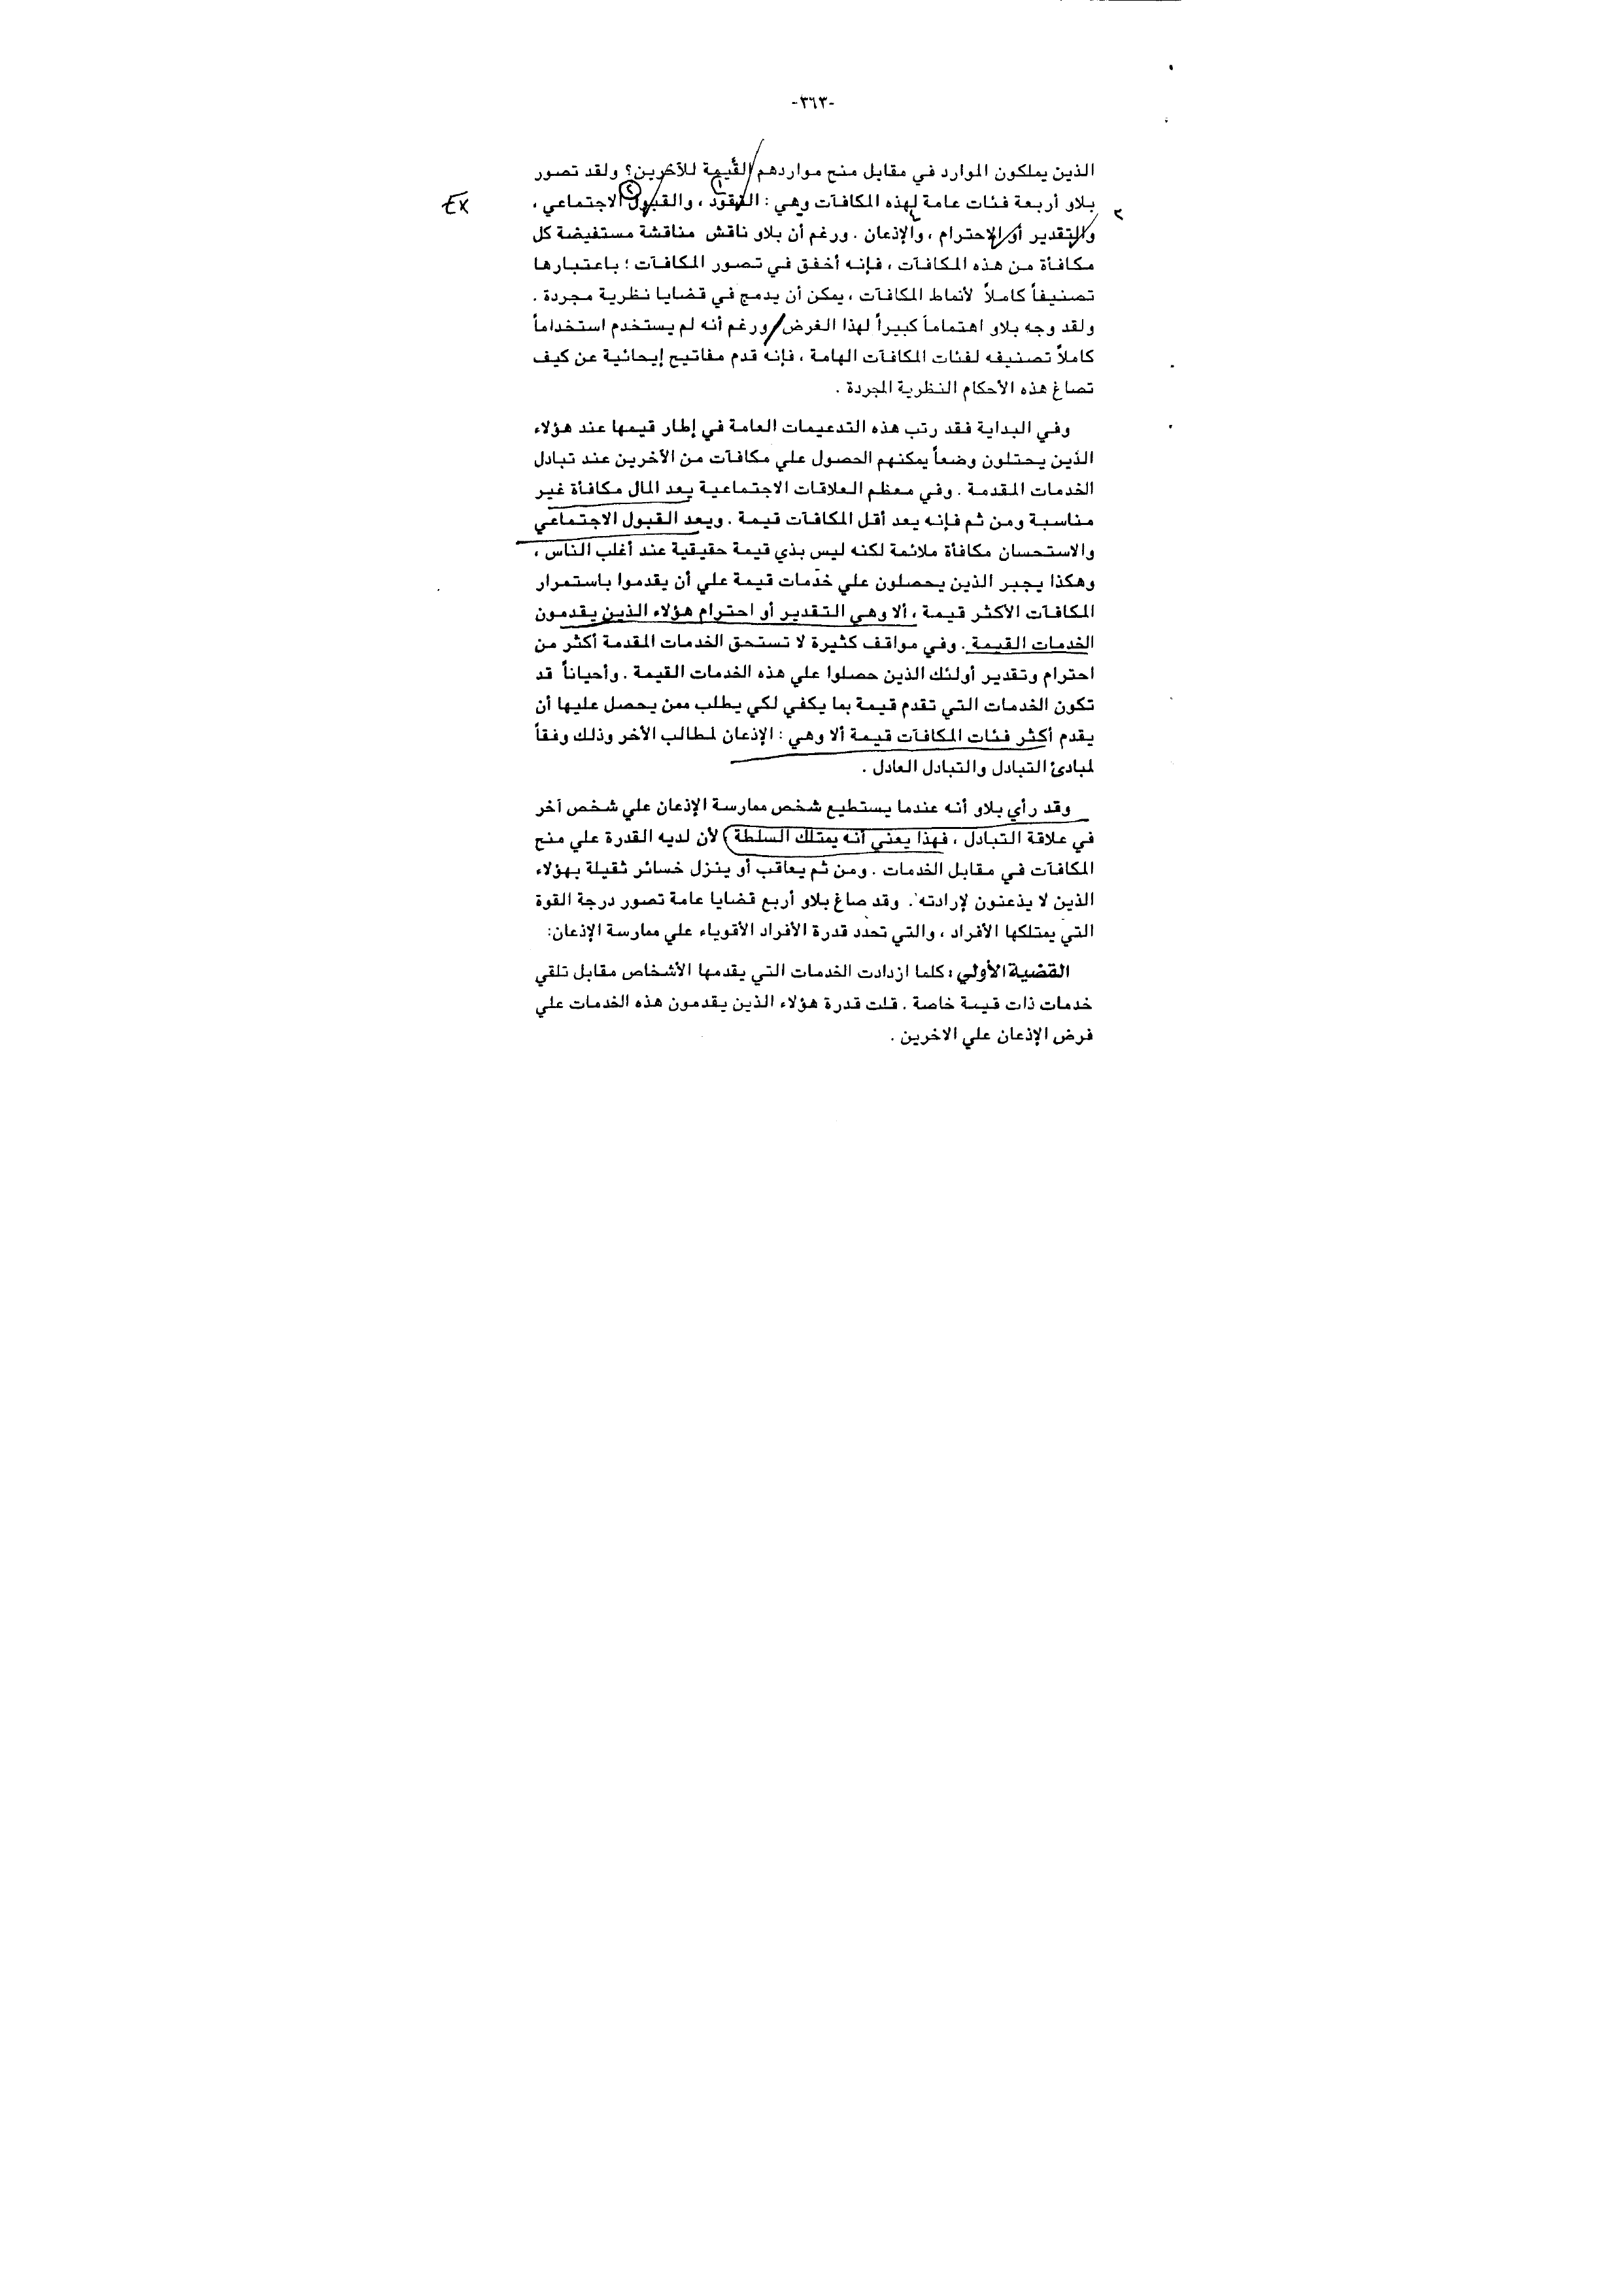 -٣٦٣-
الذين يملكون الموارد في مقابل منح مواردهم القيمة للآخرين؟ ولقد تصور
بلاو أربعة فئات عامة لهذه المكافآت وهي : النقود ، والقبول الاجتماعي ،
والتقدير أو الاحترام ، والإذعان . ورغم أن بلاو ناقش مناقشة مستفيضة كل
مكافأة من هذه المكافآت ، فإنه أخفق في تصور المكافآت ؛ باعتبارها
تصنيفاً كاملاً لأنماط المكافآت ، يمكن أن يدمج في قضايا نظرية مجردة .
ولقد وجه بلاو اهتماماً كبيراً لهذا الغرض / ورغم أنه لم يستخدم استخداماً
كاملاً تصنيفه لفئات المكافآت الهامة ، فإنه قدم مفاتيح إيحائية عن كيف
تصاغ هذه الأحكام النظرية المجردة .
وفي البداية فقد رتب هذه التدعيمات العامة في إطار قيمها عند هؤلاء
الذين يحتلون وضعاً يمكنهم الحصول علي مكافآت من الآخرين عند تبادل
الخدمات المقدمة . وفي معظم العلاقات الاجتماعية يعد المال مكافأة غير
مناسبة ومن ثم فإنه يعد أقل المكافآت قيمة . ويعد القبول الاجتماعي
والاستحسان مكافأة ملائمة لكنه ليس بذي قيمة حقيقية عند أغلب الناس ،
وهكذا يجبر الذين يحصلون علي خدمات قيمة علي أن يقدموا باستمرار
المكافآت الأكثر قيمة ، ألا وهي التقدير أو احترام هؤلاء الذين يقدمون
الخدمات القيمة . وفي مواقف كثيرة لا تستحق الخدمات المقدمة أكثر من
احترام وتقدير أولئك الذين حصلوا علي هذه الخدمات القيمة . وأحياناً قد
تكون الخدمات التي تقدم قيمة بما يكفي لكي يطلب ممن يحصل عليها أن
يقدم أكثر فئات المكافآت قيمة ألا وهي : الإذعان لمطالب الأخر وذلك وفقاً
لمبادئ التبادل والتبادل العادل .
وقد رأي بلاو أنه عندما يستطيع شخص ممارسة الإذعان علي شخص آخر
في علاقة التبادل ، فهذا يعني أنه يمتلك السلطة ، لأن لديه القدرة علي منح
المكافآت في مقابل الخدمات . ومن ثم يعاقب أو ينزل خسائر ثقيلة بهؤلاء
الذين لا يذعنون لإرادته . وقد صاغ بلاو أربع قضايا عامة تصور درجة القوة
التي يمتلكها الأفراد ، والتي تحدد قدرة الأفراد الأقوياء علي ممارسة الإذعان:
القضية الأولي : كلما ازدادت الخدمات التي يقدمها الأشخاص مقابل تلقي
خدمات ذات قيمة خاصة . قلت قدرة هؤلاء الذين يقدمون هذه الخدمات علي
فرض الإذعان علي الاخرين .
EX